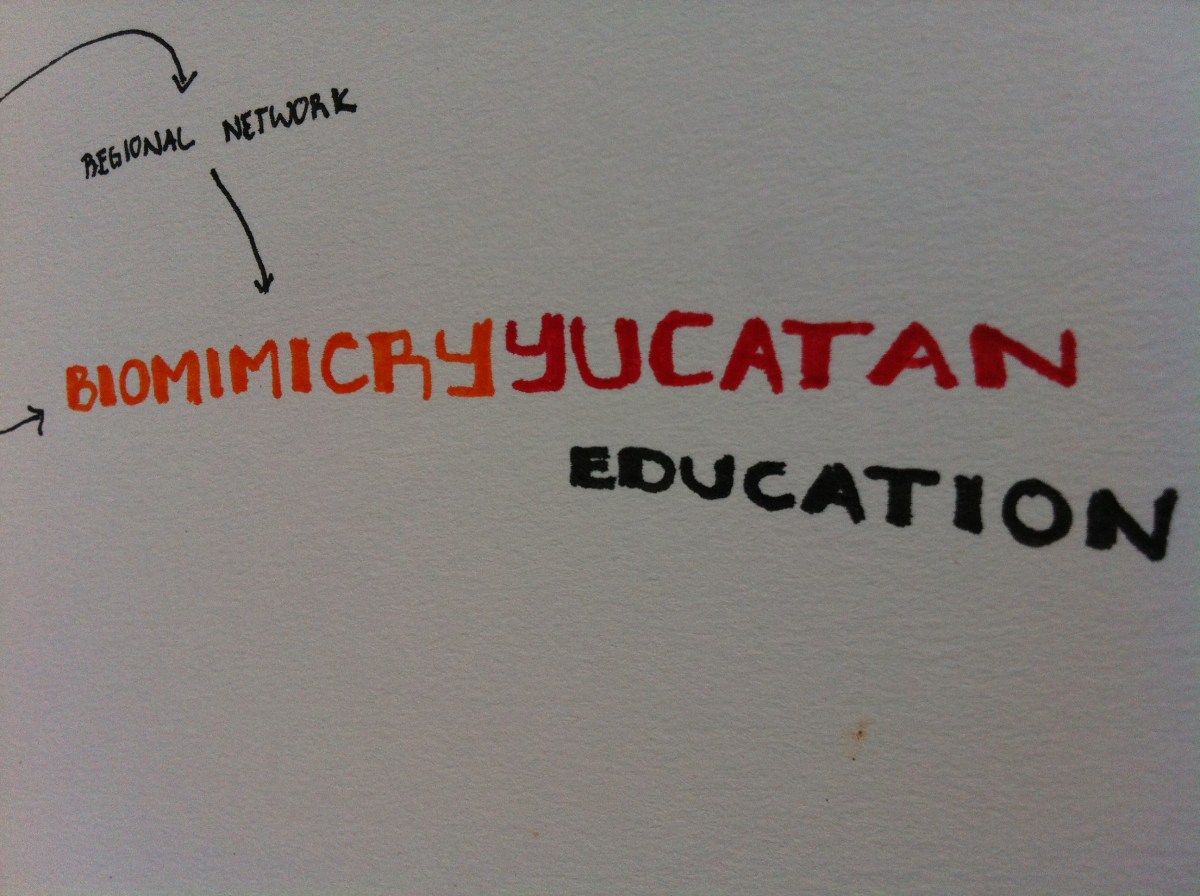 REGIONAL NETWORK
BIOMIMICRYYUCATAN
EDUCATION